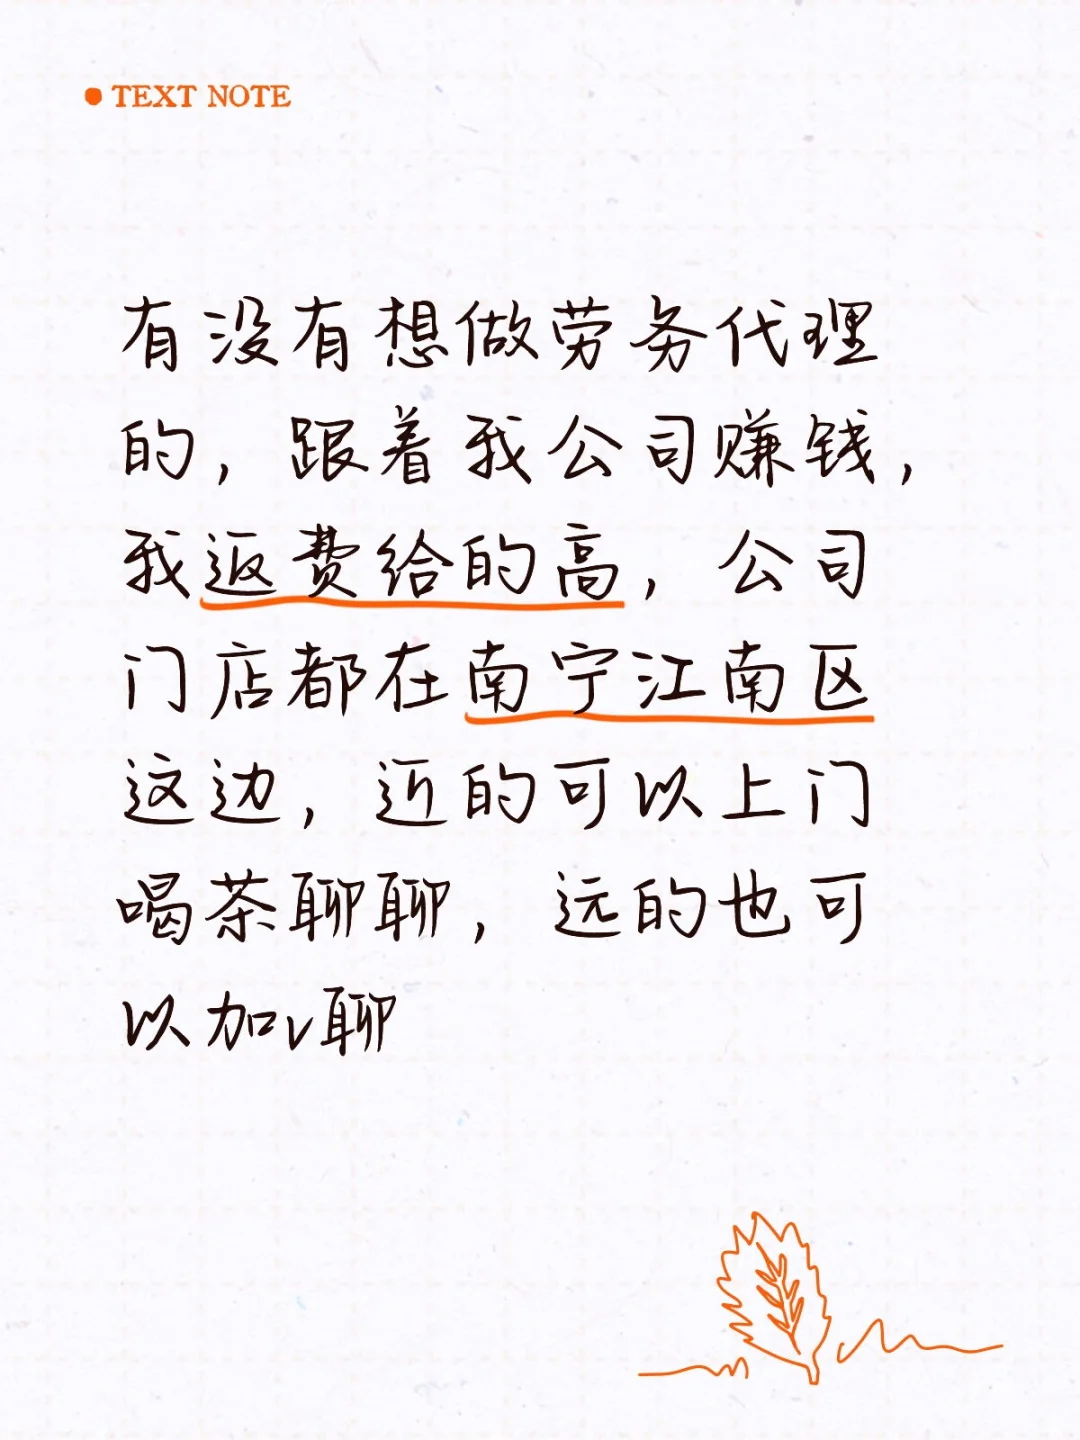 TEXT NOTE
有没有想做劳务代理
的，跟着我公司赚钱，
我返费给的高，公司
门店都在南宁江南区
这边，近的可以上门
喝茶聊聊，远的也可
以加v聊